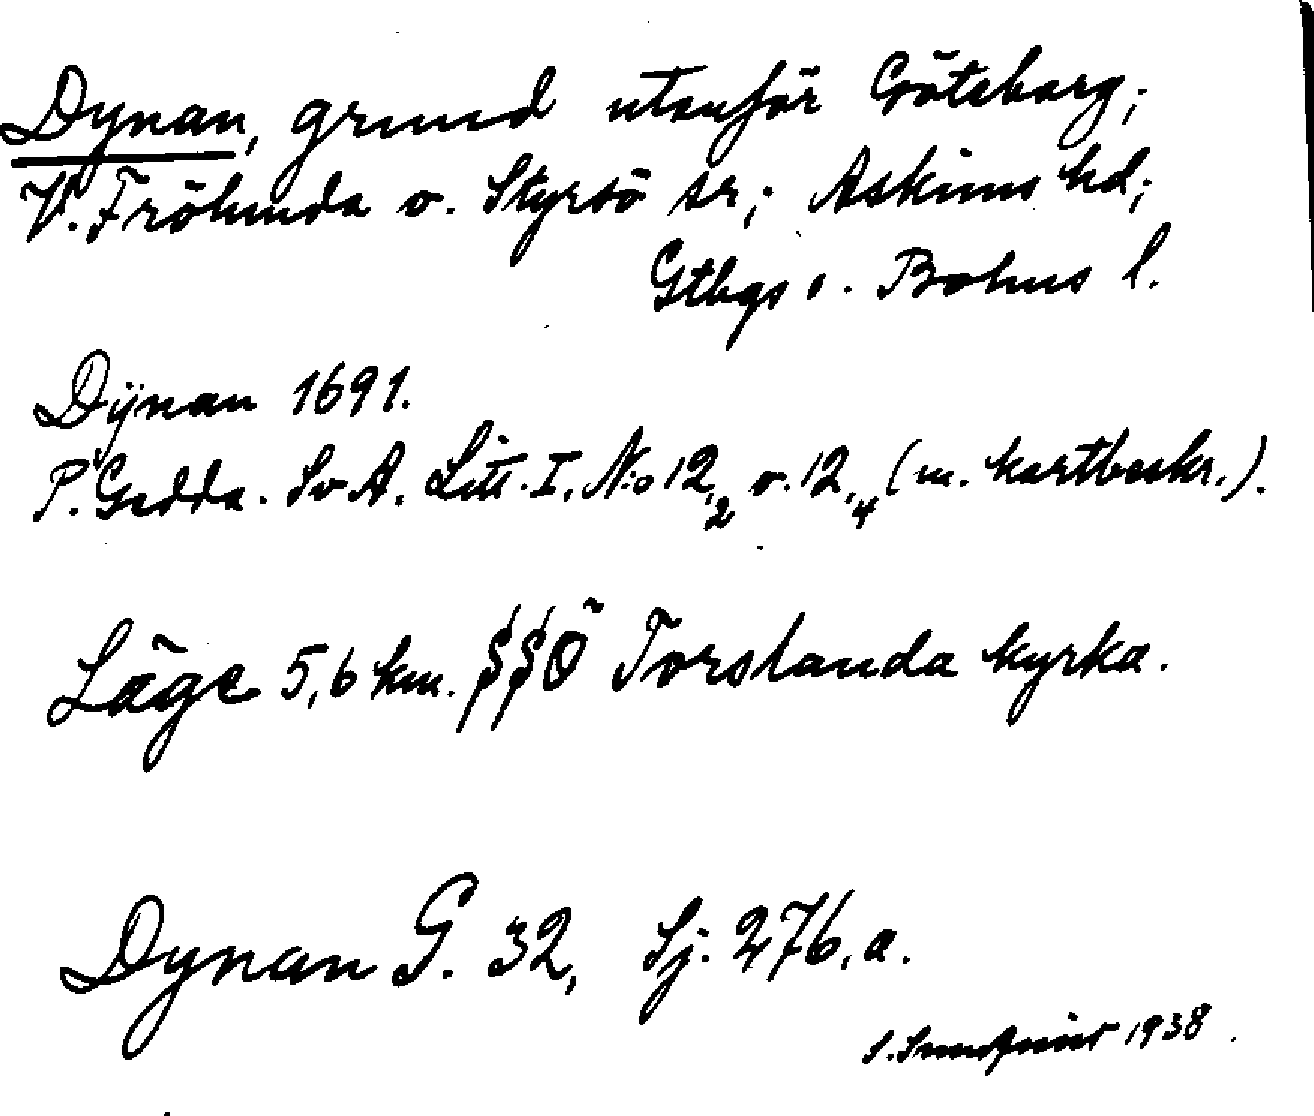 Dynan, grund utanför Göteborg;
V. Frölunda o. Styrsö sr; Askims hd;
Gtbgs o. Bohus l.
Dÿnan 1691.
P. Gedda. Sv A. Litt. I. N:o 12,2 o. 12,4 (m. kartbeskr.).
Läge 5,6 km. SSÖ Torslanda kyrka.
Dynan G. 32, Sj. 276, a.
S. Sundquist 1938.